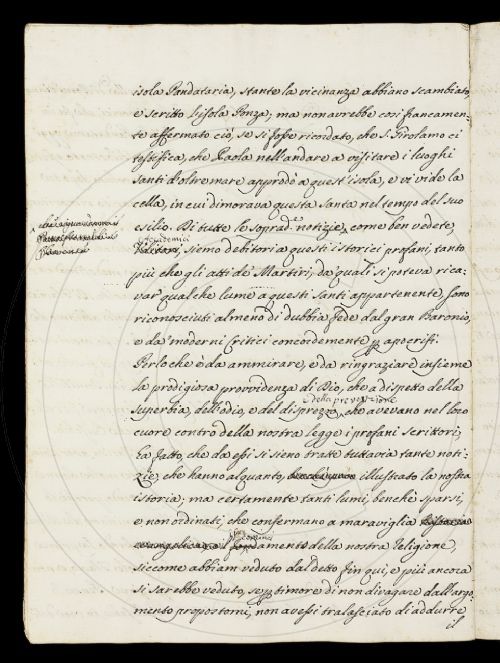 isola Pandataria, stante la vicinanza abbiano scambiato,
e scritto l'isola Ponza; ma non avrebbe così francamen-
te affermato ciò, se si fosse ricordato, che S. Girolamo ci
testifica, che Paola nell'andare a visitare i luoghi
Santi d'oltremare approdò a quest'isola, e vi vide la
cella, in cui dimorava questa Santa nel tempo del suo
esilio. Di tutte le soprad.e notizie, come ben vedete,
Accademici
siamo debitori a questi istorici profani, tanto
più che gli atti de' Martiri, da quali si poteva rica-
var qualche lume a questi Santi appartenente, sono
riconosciuti almeno di dubbia fede dal gran Baronio,
e da' moderni Critici concordemente p apocrifi.
Perlo che è da ammirare, e da ringraziare insieme
la prodigiosa provvidenza di Dio, che a dispetto della
della prevenzione
superbia, dell'odio, e del disprezzo, che avevano nel loro
cuore contro della nostra legge i profani scrittori,
ha fatto, che da essi si sieno tratte tuttavia tante noti-
zie, che hanno alquanto, illustrato la nostra
istoria; ma certamente tanti lumi, benchè sparsi,
e non ordinati, che confermano a maraviglia
i fondamenti della nostra Religione,
siccome abbiam veduto dal detto fin qui, e più ancora
si sarebbe veduto, se p timore di non divagare dall'argo-
mento propostomi, non avessi tralasciato di addurre
il